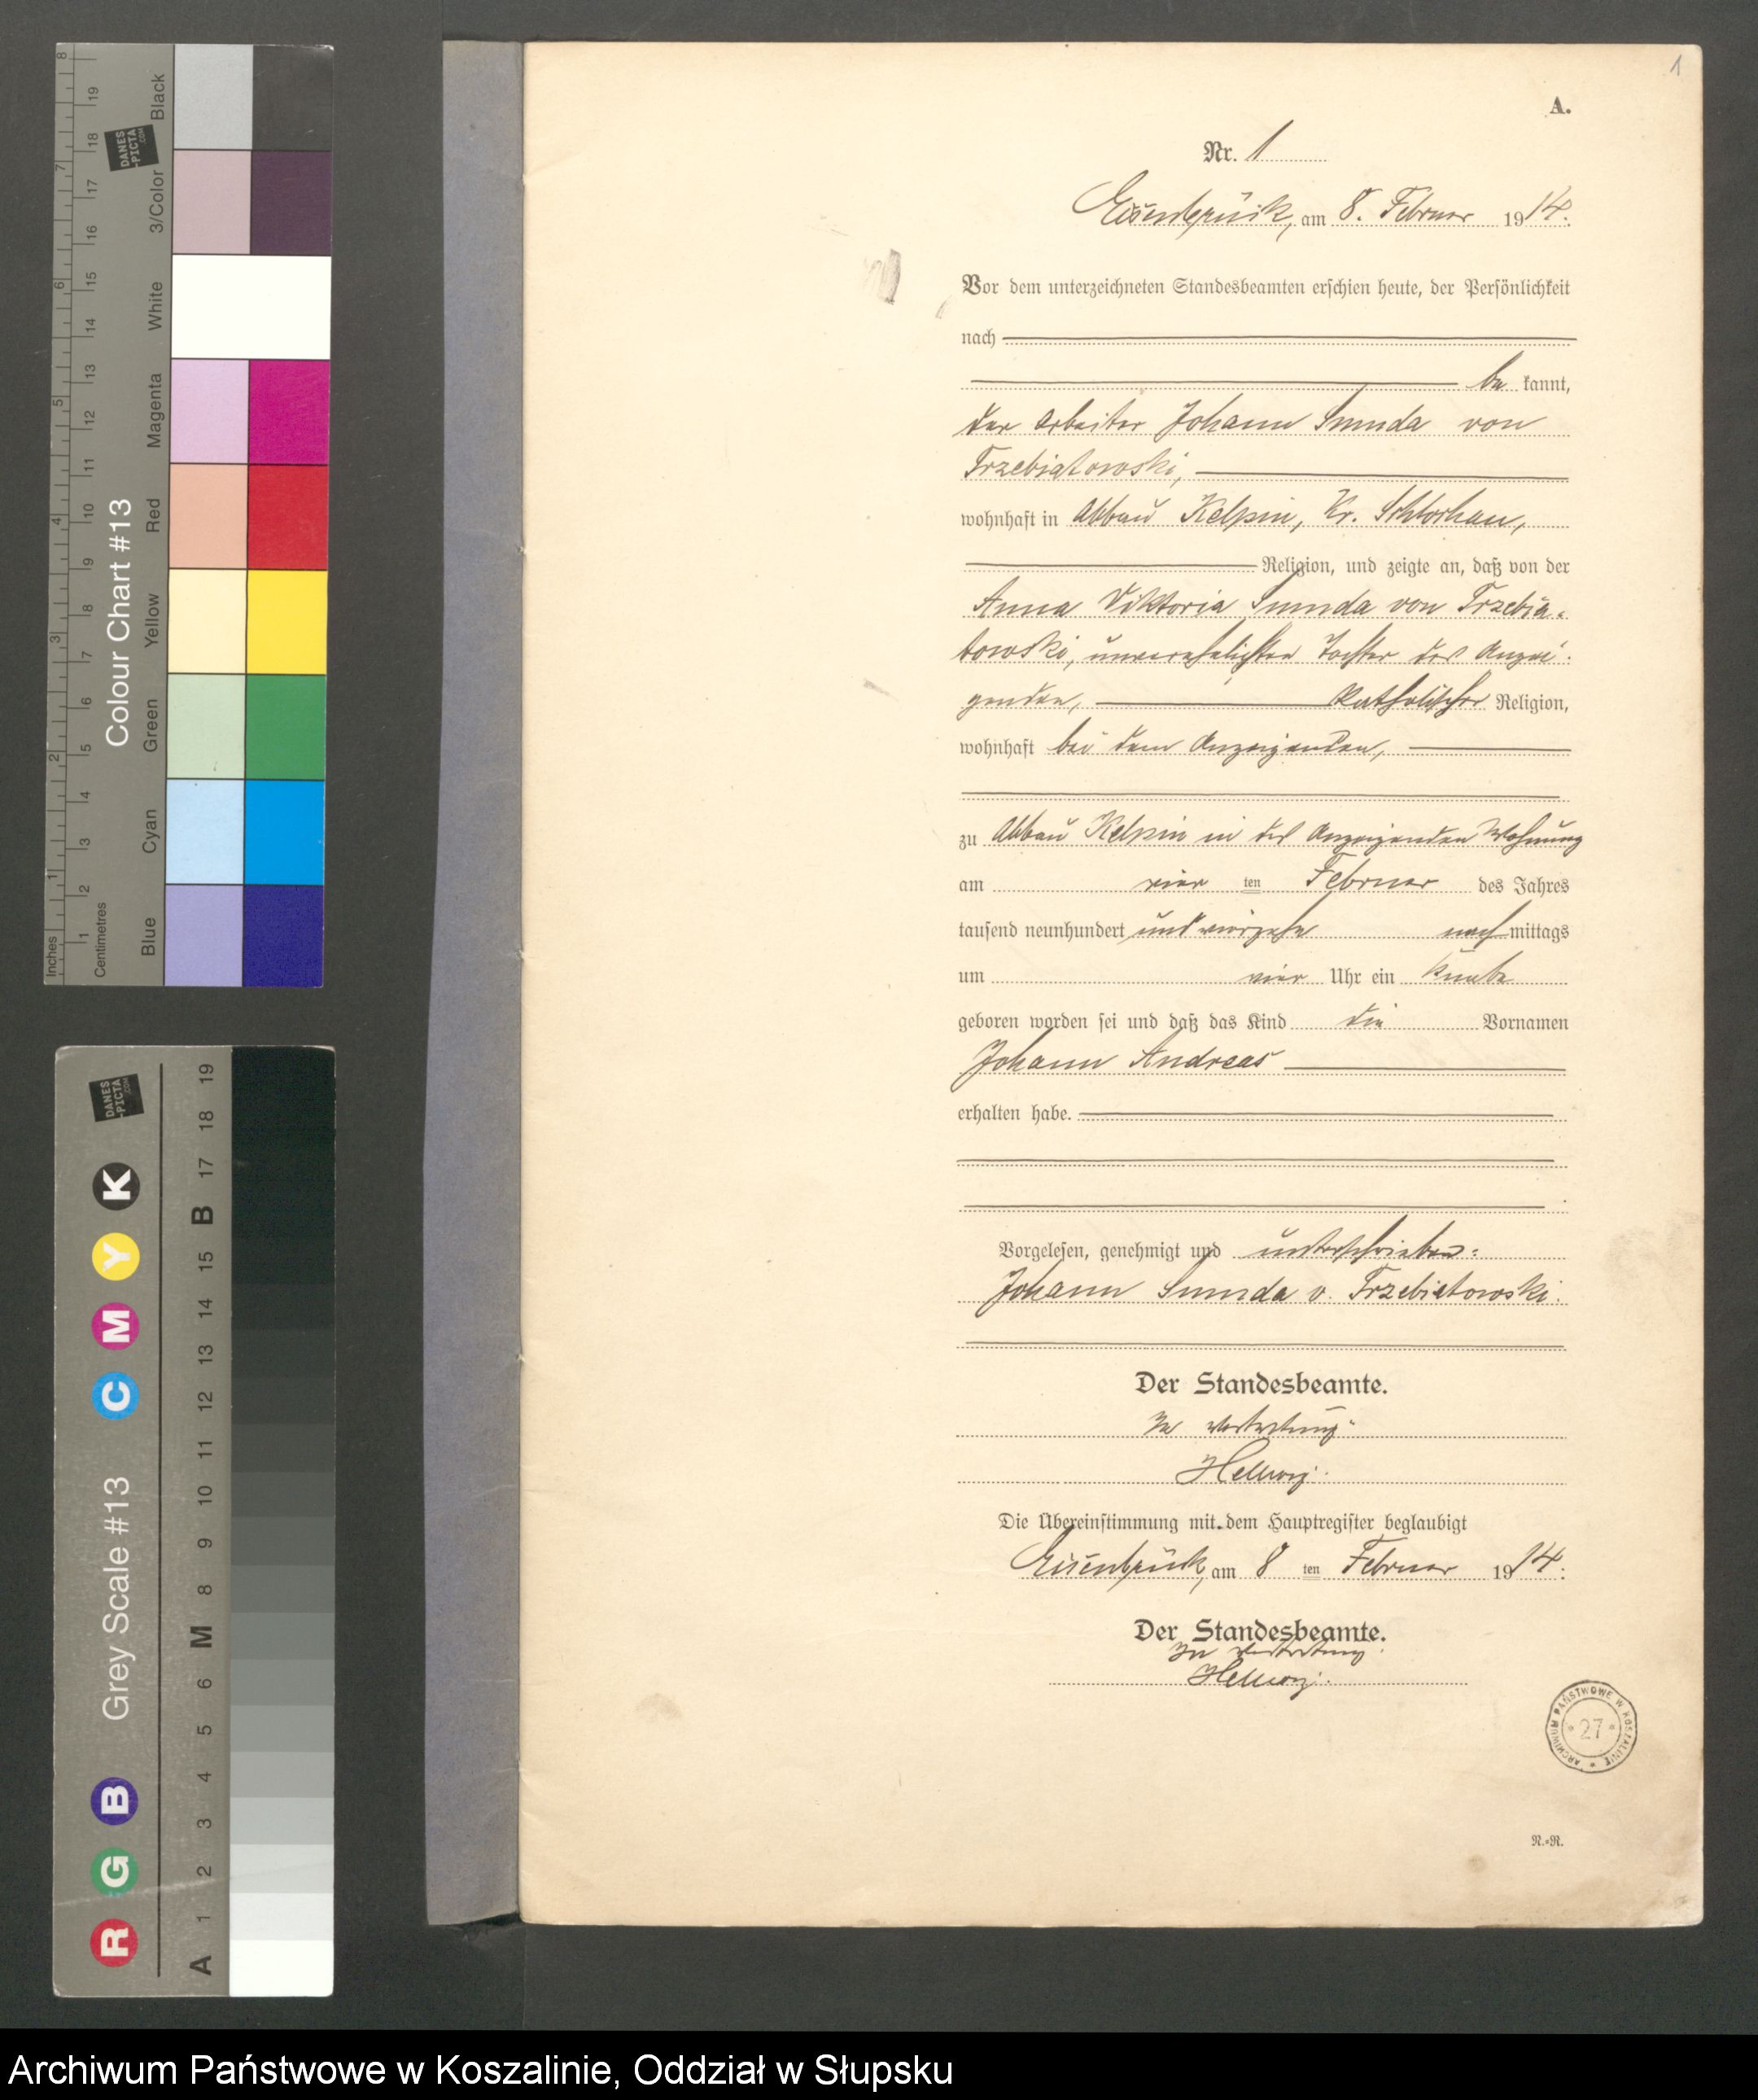 1
A.
Nr. 1
Eisenbrück, am 8. Februar 1914.
Vor dem unterzeichneten Standesbeamten erschien heute, der Persönlichkeit
nach
be kannt,
der Arbeiter Johann Smuda von
Trzebiatowski,
wohnhaft in Abbau Kelpin, Kr. Schlochau,
Religion, und zeigte an, daß von der
Anna Viktoria Smuda von Trzebia-
towski, unverehelichten Tochter des Anzei-
genden, katholischer Religion,
wohnhaft bei dem Anzeigenden,
zu Abbau Kelpin in des Anzeigenden Wohnung
am vier ten Februar des Jahres
tausend neunhundert und vierzehn nachmittags
um vier Uhr ein Knabe
geboren worden sei und daß das Kind die Vornamen
Johann Andreas
erhalten habe.
Vorgelesen, genehmigt und unterschrieben:
Johann Smuda v. Trzebiatowski.
Der Standesbeamte.
In Vertretung:
Hellwig.
Die Übereinstimmung mit dem Hauptregister beglaubigt
Eisenbrück, am 8 ten Februar 1914.
Der Standesbeamte.
In Vertretung:
Hellwig.
ARCHIWUM PAŃSTWOWE W KOSZALINIE
* 27 *
N.-R.
Colour Chart #13
Black
3/Color
White
Magenta
Red
Yellow
Green
Cyan
Blue
Inches
1 2 3 4 5 6 7 8
Centimetres
1 2 3 4 5 6 7 8 9 10 11 12 13 14 15 16 17 18 19
DANES
-PICTA
.COM
Grey Scale #13
R G B C M Y K
A 1 2 3 4 5 6 M 8 9 10 11 12 13 14 15 B 17 18 19
DANES
-PICTA
.COM
Archiwum Państwowe w Koszalinie, Oddział w Słupsku